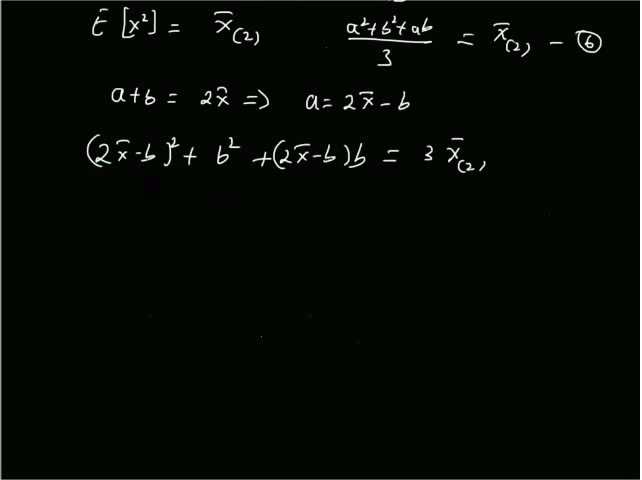 E [x²] = x̄₍₂₎ (a²+b²+ab)/3 = x̄₍₂₎ — ⑥
a+b = 2x̄ => a = 2x̄ - b
(2x̄-b)² + b² + (2x̄-b)b = 3 x̄₍₂₎